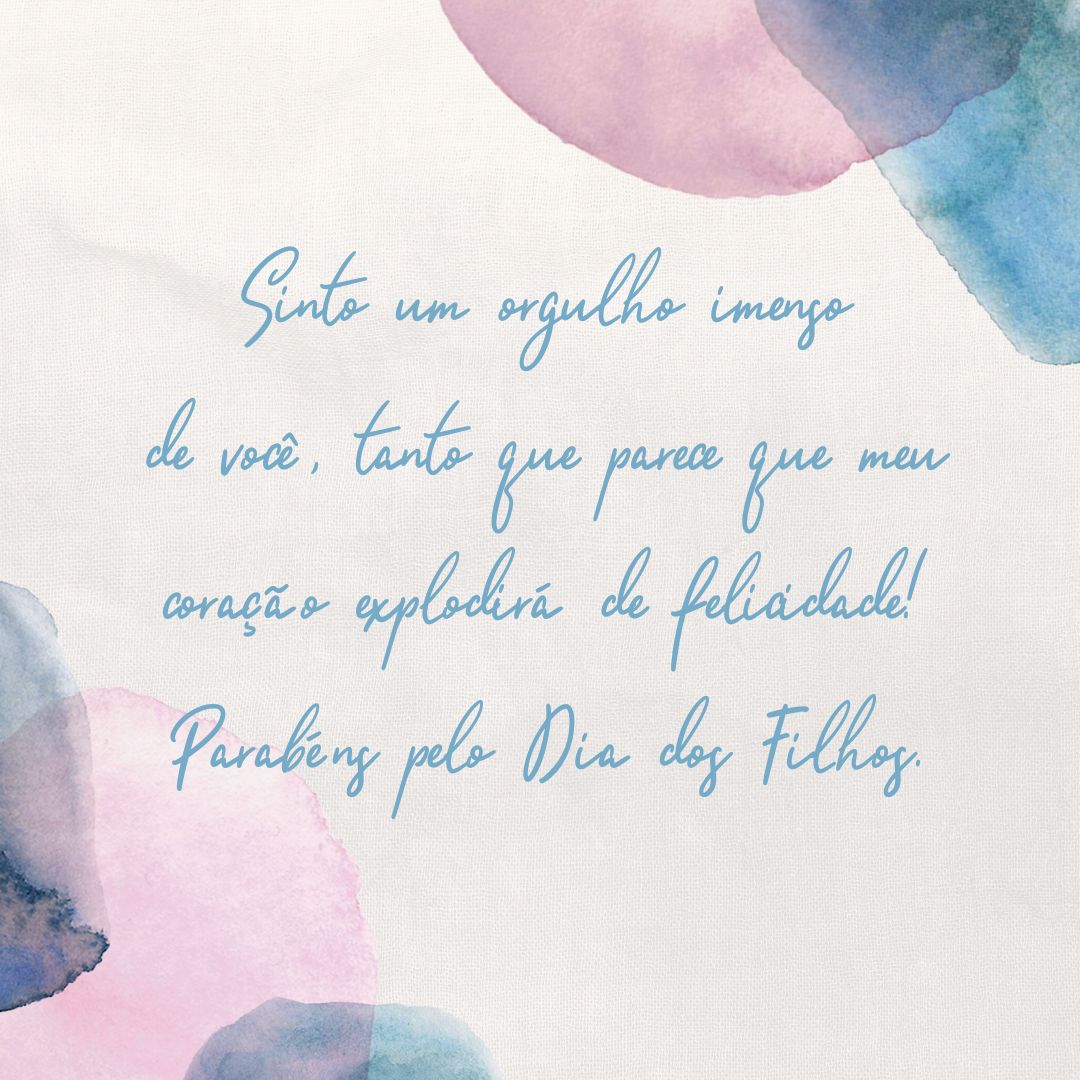 Sinto um orgulho imenso
de você, tanto que parece que meu
coração explodirá de felicidade!
Parabéns pelo Dia dos Filhos.